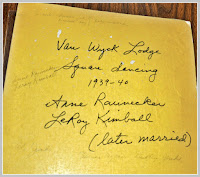 Van Wyck Lodge
Square dancing
1939-40
Anne Raunecker
LeRoy Kimball
(later married)